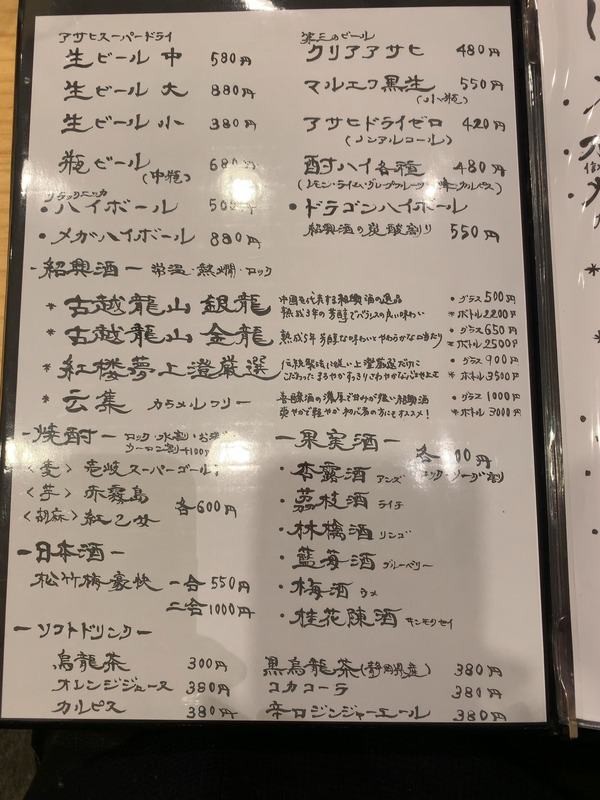 アサヒスーパードライ
生ビール 中 580円
生ビール 大 880円
生ビール 小 380円
瓶ビール 680円
(中瓶)
ブラックニッカ
・ハイボール 500円
・メガハイボール 880円
第三のビール
クリアアサヒ 480円
マルエフ黒生 550円
(小瓶)
アサヒドライゼロ 420円
(ノンアルコール)
酎ハイ各種 480円
(レモン・ライム・グレープフルーツ カルピス)
・ドラゴンハイボール
紹興酒の炭酸割り 550円
-紹興酒- 常温・熱燗・ロック
* 古越龍山 銀龍 中国を代表する紹興酒の逸品
熟成3年の芳醇でバランスの良い味わい
・グラス500円
*ボトル2200円
* 古越龍山 金龍 熟成5年芳醇な味わいとやわらかな口当たり
・グラス650円
*ボトル2500円
* 紅楼夢上澄厳選 伝統製法に従い上澄厳選だけに
こだわった まろやかすっきりさわやかな
・グラス900円
*ボトル3500円
* 云集 カラメルフリー
爽やかで軽やか 初心者の方にもオススメ!
・グラス1000円
*ボトル3000円
-焼酎- ロック・水割り・お湯
ウーロン割り+100円
<麦> 壱岐スーパーゴールド
<芋> 赤霧島 各600円
<胡麻> 紅乙女
-日本酒-
松竹梅豪快 一合 550円
二合 1000円
-果実酒- 各 00円
ロック・ソーダ割り
・杏露酒 アンズ
・茘枝酒 ライチ
・林檎酒 リンゴ
・藍苺酒 ブルーベリー
・梅酒 ウメ
・桂花陳酒 キンモクセイ
-ソフトドリンク-
烏龍茶 300円
オレンジジュース 380円
カルピス 380円
黒烏龍茶(静岡県産) 380円
コカコーラ 380円
辛口ジンジャーエール 380円